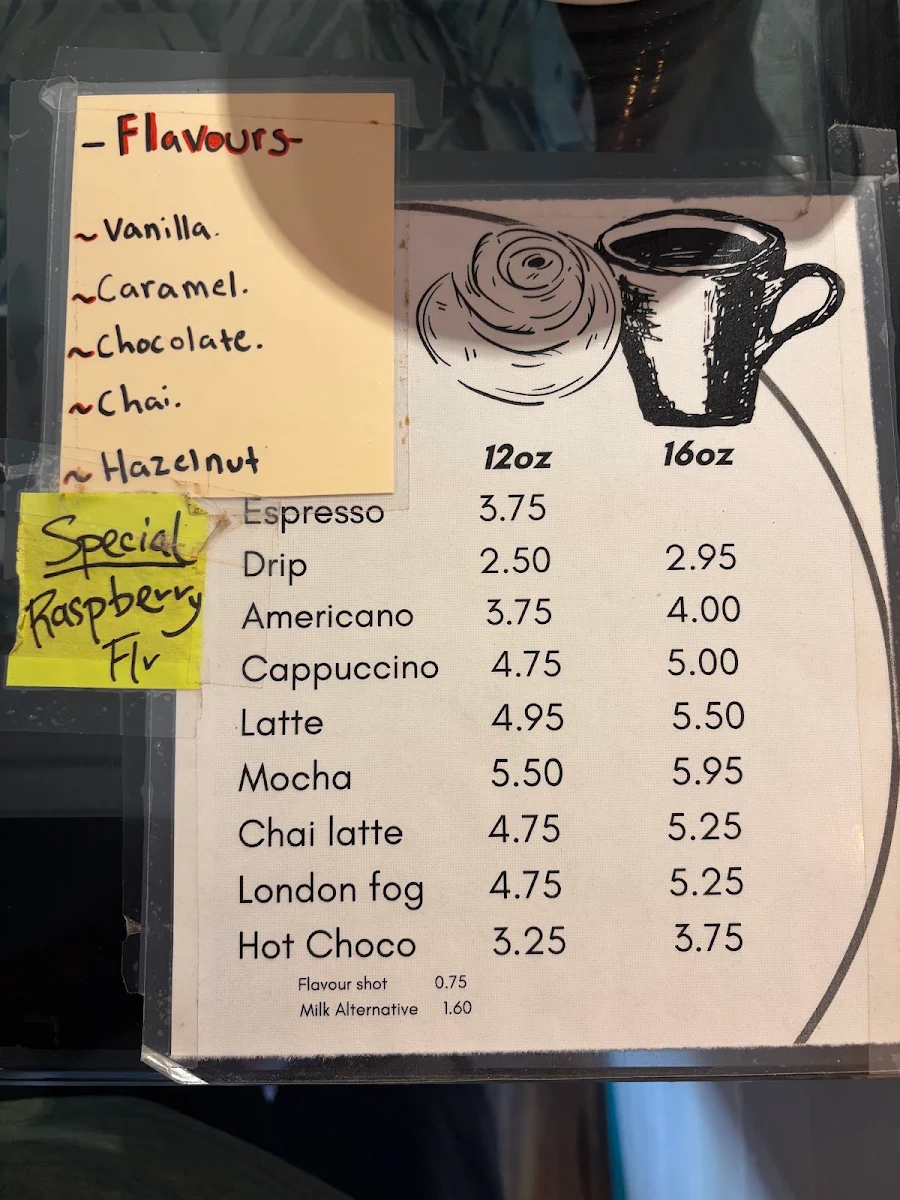 - Flavours -
~ Vanilla.
~ Caramel.
~ Chocolate.
~ Chai.
~ Hazelnut
Special
Raspberry
Flv
12oz 16oz
Espresso 3.75
Drip 2.50 2.95
Americano 3.75 4.00
Cappuccino 4.75 5.00
Latte 4.95 5.50
Mocha 5.50 5.95
Chai latte 4.75 5.25
London fog 4.75 5.25
Hot Choco 3.25 3.75
Flavour shot 0.75
Milk Alternative 1.60